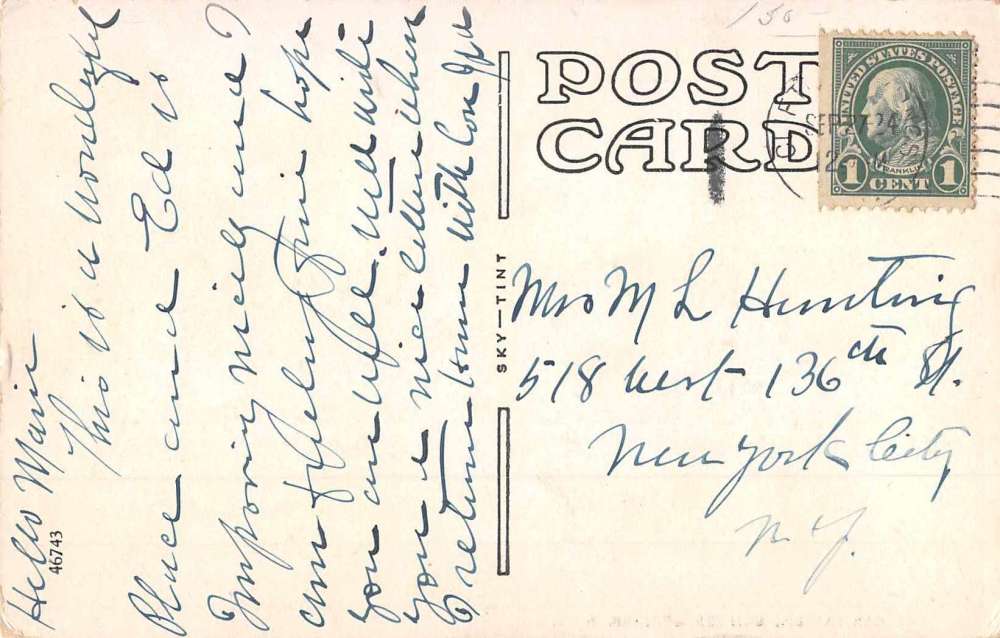 Hello Marie
This is a wonderful
Place and Ed is
Improving nicely and I
am feeling fine hope
you are Will write
you a nice letter when
I return home with
46743
SKY—TINT
POST
CARD
150-
UNITED STATES POSTAGE
FRANKLIN
1 CENT 1
SEP 17 24
Mrs M L Hunting
518 west 136th St.
New York City
N.Y.